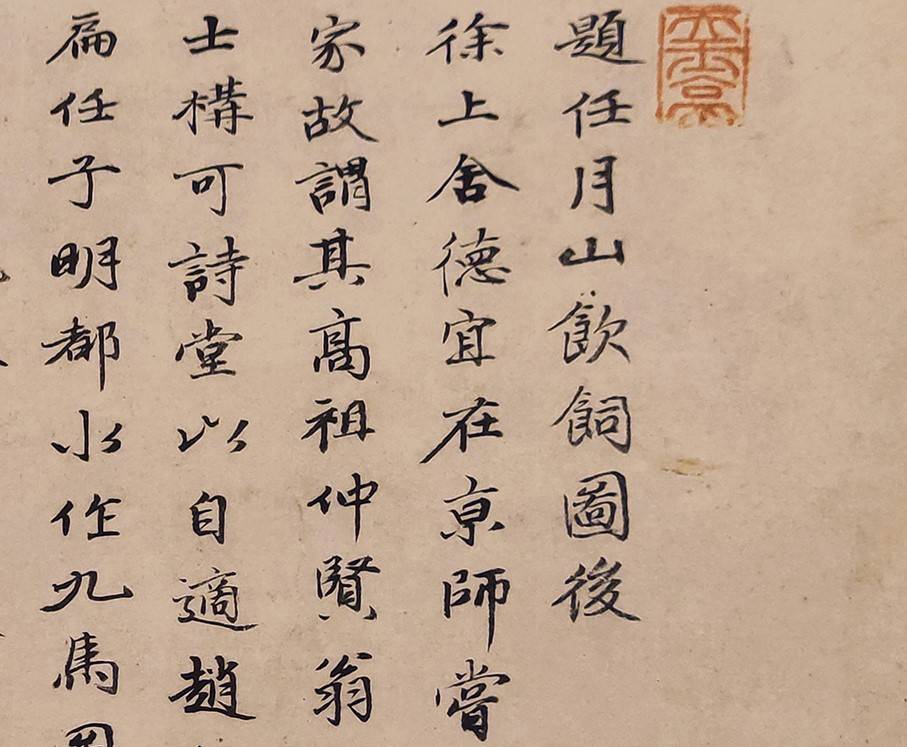 題任月山飲飼圖後
徐上舍德宜在京師嘗
家故謂其高祖仲賢翁
士構可詩堂以自適趙
扁任子明都水作九馬圖